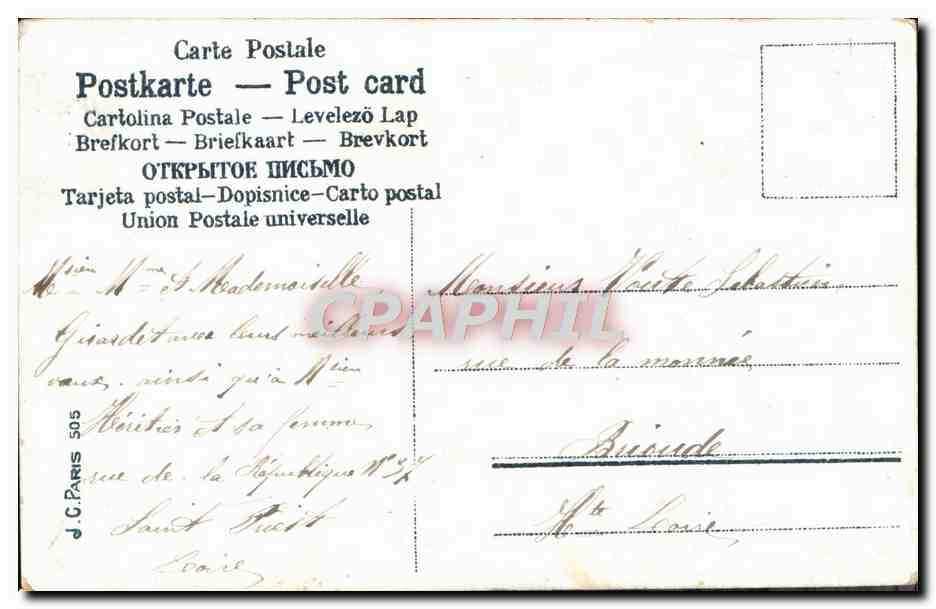 Carte Postale
Postkarte — Post card
Cartolina Postale — Levelezö Lap
Brefkort — Briefkaart — Brevkort
ОТКРЫТОЕ ПИСЬМО
Tarjeta postal—Dopisnice—Carto postal
Union Postale universelle
Msieu Mme et Mademoiselle
Girardet avec leurs meilleurs
vœux ainsi qu'à Msieu
Héritier et sa femme
rue de la République N° 37
Saint Priest
Loire
J.C. PARIS 505
Monsieur Sébastien
rue de la monnée
Brioude
Hte Loire
CPAPHIL